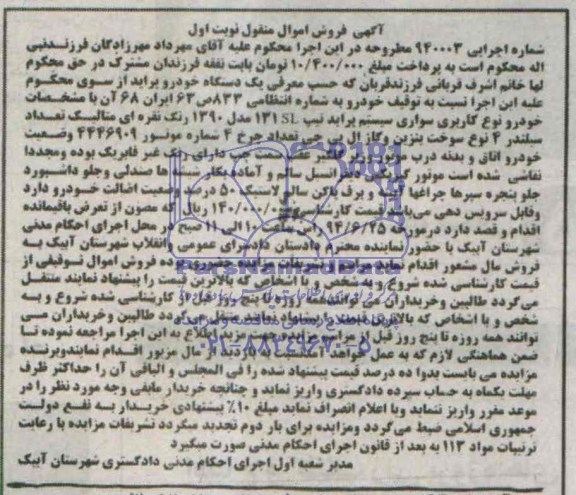 آگهی فروش اموال منقول نوبت اول
شماره اجرایی ۹۴۰۰۰۳ مطروحه در این اجرا محکوم علیه آقای مهرداد مهرزادگان فرزند نبی
اله محکوم است به پرداخت مبلغ ۱۰/۴۰۰/۰۰۰ تومان بابت نفقه فرزندان مشترک در حق محکوم
لها خانم اشرف قربانی فرزند قربان که حسب معرفی یک دستگاه خودرو پراید از سوی محکوم
علیه این اجرا نسبت به توقیف خودرو به شماره انتظامی ۸۳۳ص۶۳ ایران ۶۸ آن با مشخصات
خودرو نوع کاربری سواری سیستم پراید تیپ 131 SL مدل ۱۳۹۰ رنگ نقره ای متالیک تعداد
سیلندر ۴ نوع سوخت بنزین وگاز ال پی جی تعداد چرخ ۴ شماره موتور ۴۴۴۶۹۰۹ وضعیت
خودرو اتاق و بدنه درب موتور وزیر گلگیر عقب سمت چپ دارای رنگ غیر فابریک بوده ومجددا
نقاشی شده است موتور گیربکس دیفرانسیل سالم و آماده بکار شیشه ها صندلی وجلو داشبورد
جلو پنجره سپرها چراغها آئینه و برف پاکن سالم لاستیک ۵۰ درصد وضعیت اصالت خودرو دارد
وقابل سرویس دهی می‌باشد قیمت کارشناسی ۱۴۰/۰۰۰/۰۰۰ ریال که مصون از تعرض باقیمانده
اقدام و قصد دارد درمورخه ۹۴/۶/۲۵ راس ساعت ۱۰ الی ۱۱ صبح در محل اجرای احکام مدنی
شهرستان آبیک با حضور نماینده محترم دادستان دادسرای عمومی وانقلاب شهرستان آبیک به
فروش مال مشعور اقدام نماید مراسم و تشریفات مزایده حضوری بوده فروش اموال توقیفی از
قیمت کارشناسی شده شروع و به شخص و یا اشخاص که بالاترین قیمت را پیشنهاد نمایند منتقل
می‌گردد طالبین وخریداران می توانند همه روزه تا پنج روز قبل از کارشناسی شده شروع و به
شخص و یا اشخاص که بالاترین قیمت را پیشنهاد نمایند منتقل می گردد طالبین وخریداران می
توانند همه روزه تا پنج روز قبل از مزایده جهت مزید اطلاع به این اجرا مراجعه نموده تا
ضمن هماهنگی لازم که به عمل خواهد آمد نسبت به بازدید از مال مزبور اقدام نمایند وبرنده
مزایده می بایست بدوا ده درصد قیمت پیشنهاد شده را فی المجلس و الباقی آن را حداکثر ظرف
مهلت یکماه به حساب سپرده دادگستری واریز نماید و چنانچه خریدار مابقی وجه مورد نظر را در
موعد مقرر واریز ننماید ویا اعلام انصراف نماید مبلغ ۱۰٪ پیشنهادی خریدار به نفع دولت
جمهوری اسلامی ضبط می‌گردد ومزایده برای بار دوم تجدید میگردد تشریفات مزایده با رعایت
ترتیبات مواد ۱۱۳ به بعد از قانون اجرای احکام مدنی صورت میگیرد
مدیر شعبه اول اجرای احکام مدنی دادگستری شهرستان آبیک
ParsNamadData
۰۲۱-۸۸۳۴۹۶۷۰-۵